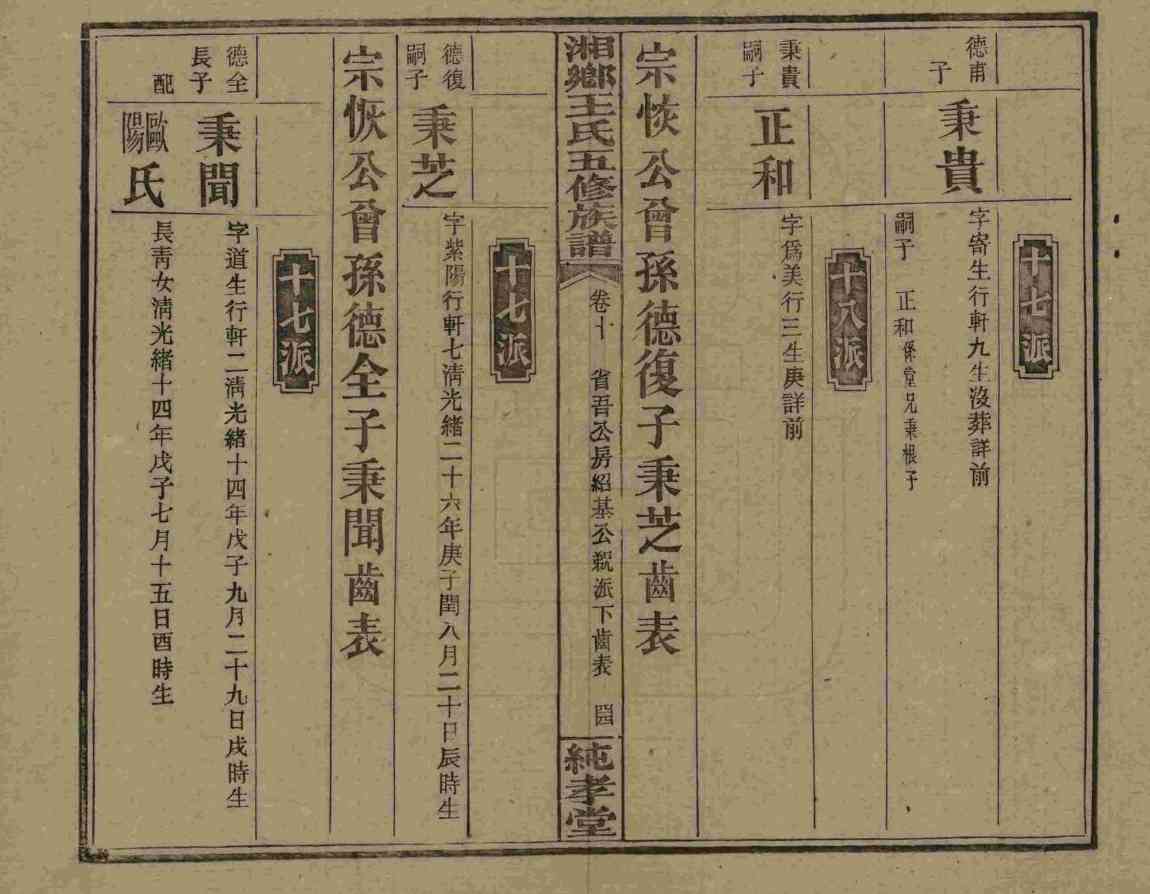 十七派
德甫子
秉貴
字寄生行軒九生沒葬詳前
嗣子 正和係堂兄秉根子
十八派
秉貴嗣子
正和
字爲美行三生庚詳前
宗恢公曾孫德復子秉芝齒表
湘鄉王氏五修族譜
卷十 省吾公房紹基公派下齒表
純孝堂
十七派
德復嗣子
秉芝
字紫陽行軒七淸光緒二十六年庚子閏八月二十日辰時生
宗恢公曾孫德全子秉聞齒表
十七派
德全長子
秉聞
字道生行軒二淸光緒十四年戊子九月二十九日戌時生
配
歐陽氏
長靑女淸光緒十四年戊子七月十五日酉時生